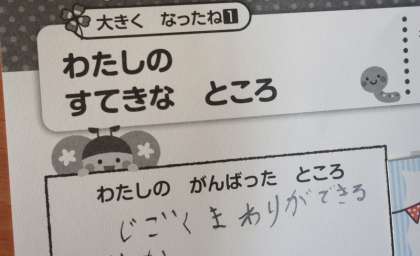 大きく なったね1
わたしの
すてきな ところ
わたしの がんばった ところ
じごくまわりができる